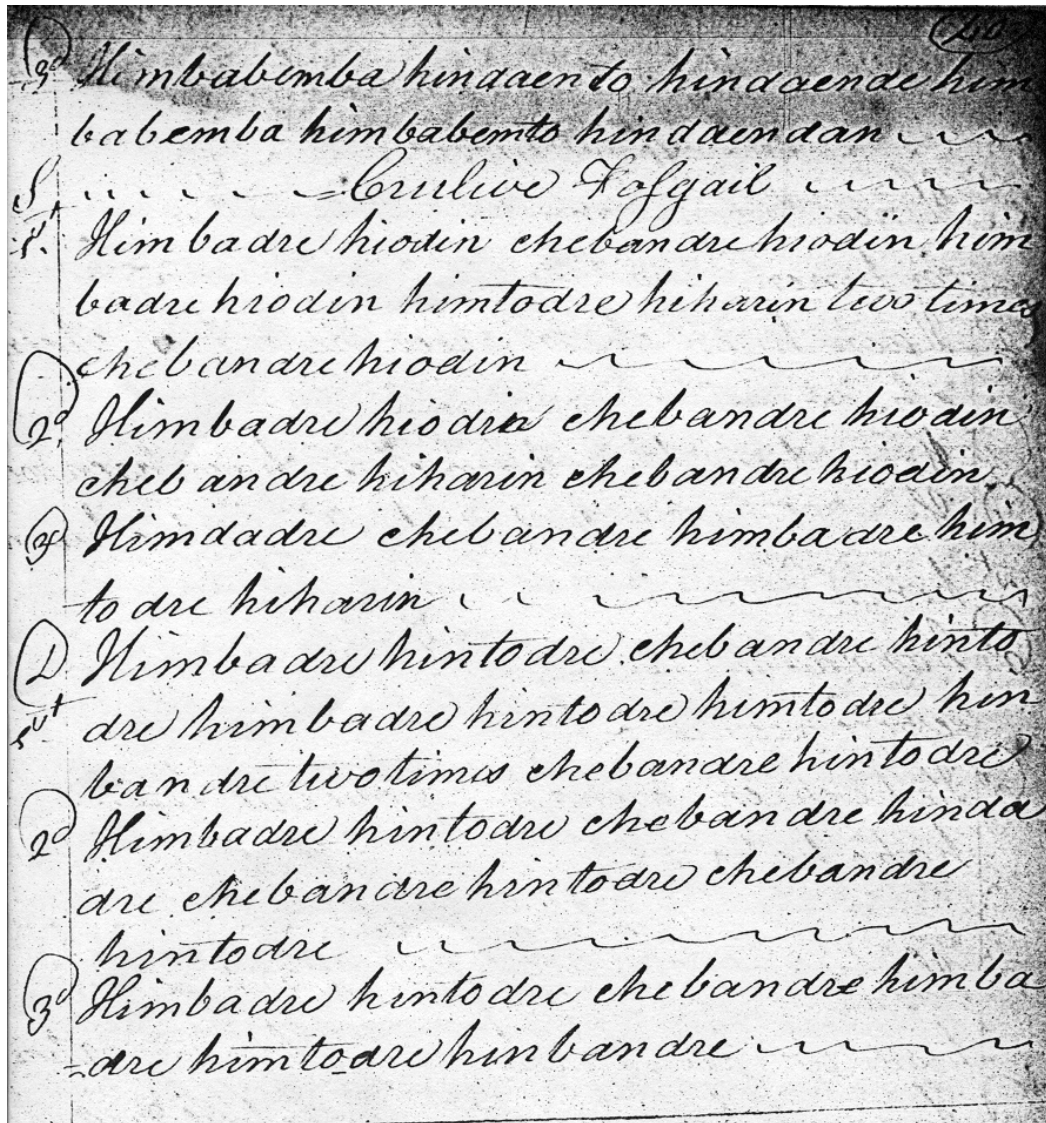 3d Himbabemba hindaento hindaende him
babemba himbabemto hindaendan
S Crulive Fosgail
1st Himbadre hiodin chebandre hiodin him
badre hiodin himtodre hiharin two times
chebandre hiodin
2d Himbadre hiodin chebandre hiodin
cheb andre hiharin chebandre hiodin
3d Himdadre chebandre himbadre him
todre hiharin
D Himbadre hintodre chebandre hinto
1st dre himbadre hintodre himtodre hin
bandre two times chebandre hintodre
2d Himbadre hintodre chebandre hinda
dre chebandre hintodre chebandre
hintodre
3d Himbadre hintodre chebandre himba
dre himtodre hinbandre